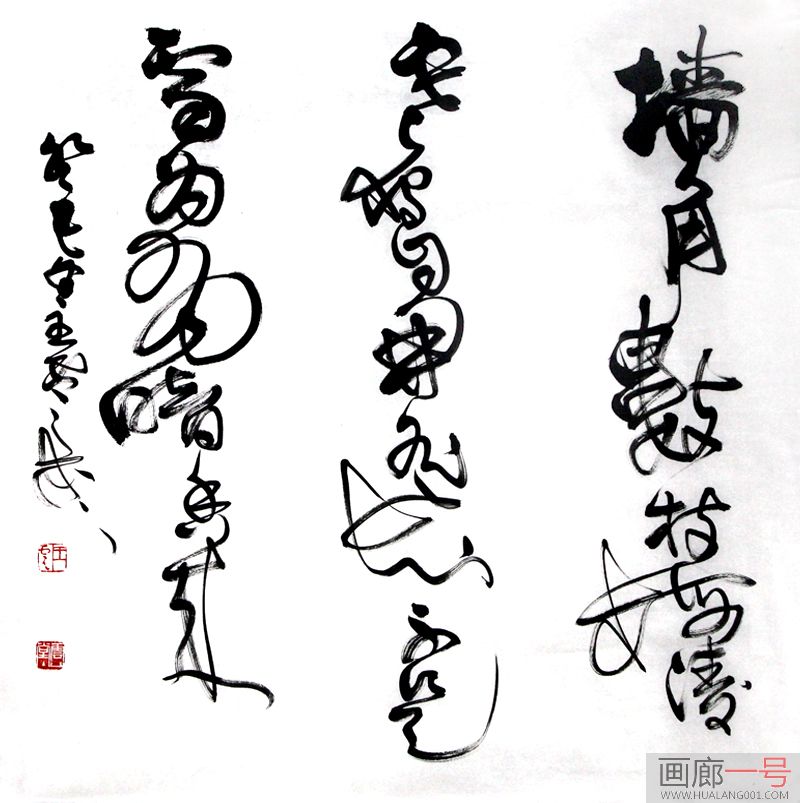 墙角數枝梅凌
寒獨自開遥知不是
雪為有暗香來
癸巳
画廊一号
WWW.HUALANG001.COM